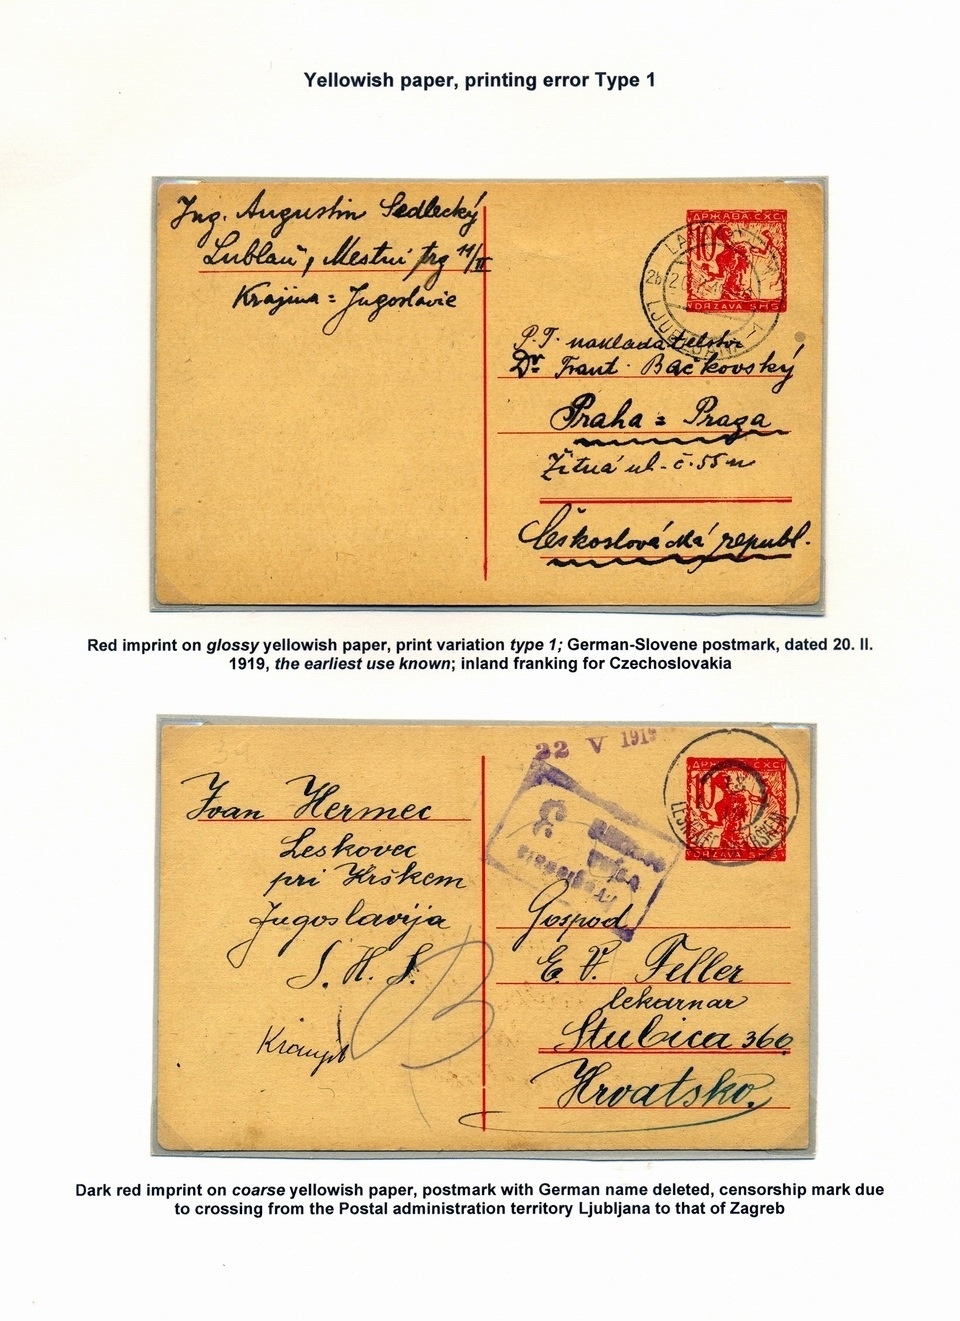 Yellowish paper, printing error Type 1
Ing. Augustin Sedlecký
Lublaň, Mestni trg 11/II
Krajina = Jugoslavie
ДРЖАВА СХС
10
DRŽAVA SHS
2b
LJUBLJANA 1
P.T. nakladatelstvi
Dr Frant. Bačkovský
Praha = Praga
Žitná ul. č. 55 n
Československá republ.
Red imprint on glossy yellowish paper, print variation type 1; German-Slovene postmark, dated 20. II.
1919, the earliest use known; inland franking for Czechoslovakia
22 V 1919
ДРЖАВА СХС
10
DRŽAVA SHS
Ivan Hermec
Leskovec
pri Krškem
Jugoslavija
S. H. S.
Gospod
E. V. Feller
lekarnar
Stubica 360
Hrvatsko.
Dark red imprint on coarse yellowish paper, postmark with German name deleted, censorship mark due
to crossing from the Postal administration territory Ljubljana to that of Zagreb